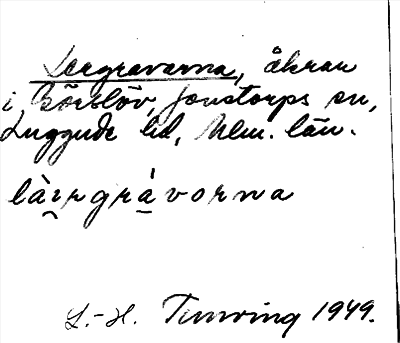 Lergravarna, åkrar
i Görslöv, Jonstorps sn,
Luggude hd, Mlm. län.
làirgrávorna
L.-H. Tunving 1949.